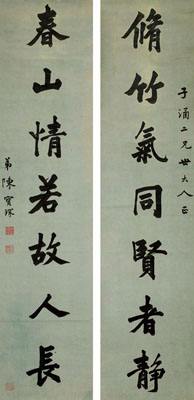 子涵二兄世大人正
脩竹氣同賢者静
春山情若故人長
弟陳寳琛